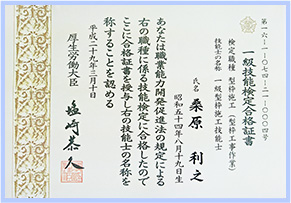 第一六-一-〇七四-三一-〇〇〇四号
一級技能検定合格証書
検定職種 型枠施工（型枠工事作業）
技能士の名称 一級型枠施工技能士
氏名 桑原利之
昭和五十四年八月十九日生
あなたは職業能力開発促進法の規定による
右の職種に係る技能検定に合格したので
ここに合格証書を授与し右の技能士の名称を
称することを認める
平成二十九年三月十日
厚生労働大臣 塩崎恭久